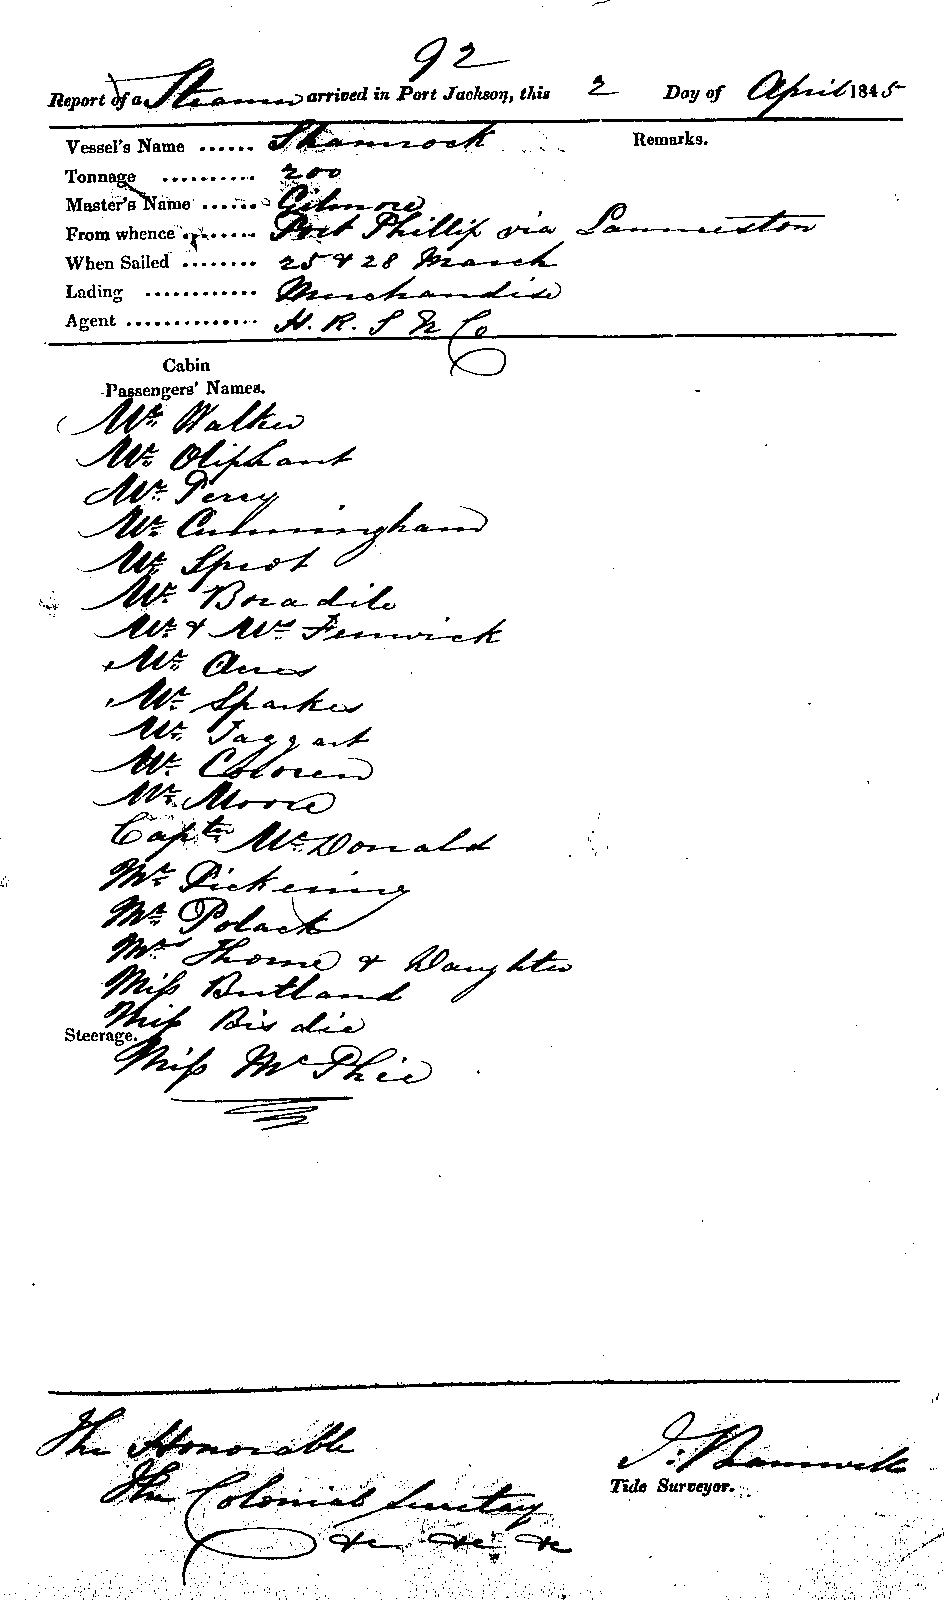 92
Report of a Steamer arrived in Port Jackson, this 2 Day of April 1845
Vessel's Name ...... Shamrock
Remarks.
Tonnage .......... 200
Master's Name ...... Gilmore
From whence ........ Port Phillip via Launceston
When Sailed ........ 25 & 28 March
Lading ............ Merchandise
Agent .............. H. R. S N Co
Cabin
Passengers' Names.
Mr Walker
Mr Oliphant
Mr Perry
Mr Cunningham
Mr Sprot
Mr Boradile
Mr & Mrs Fenwick
Mr
Mr Sparkes
Mr Taggart
Mr
Mr Moore
Captn McDonald
Mr Pickering
Mr Polack
Mrs Thorne & Daughter
Miss Butland
Miss Bisdie
Steerage.
Miss McPhie
The Honorable
The Colonial Secretary
&c &c &c
Tide Surveyor.